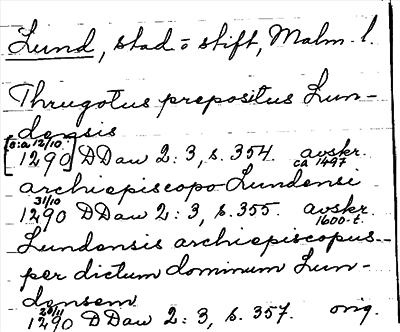 Lund, stad o stift, Malm. l.
Thrugotus prepositus Lun-
densis
[o:a 12/10 1290] DDan 2:3, s. 354. avskr. ca 1497
archiepiscopo Lundensi
31/10 1290 DDan 2:3, s. 355. avskr. 1600-t.
Lundensis archiepiscopus--
per dictum dominum Lun-
densem
1290 DDan 2:3, s. 357. orig.